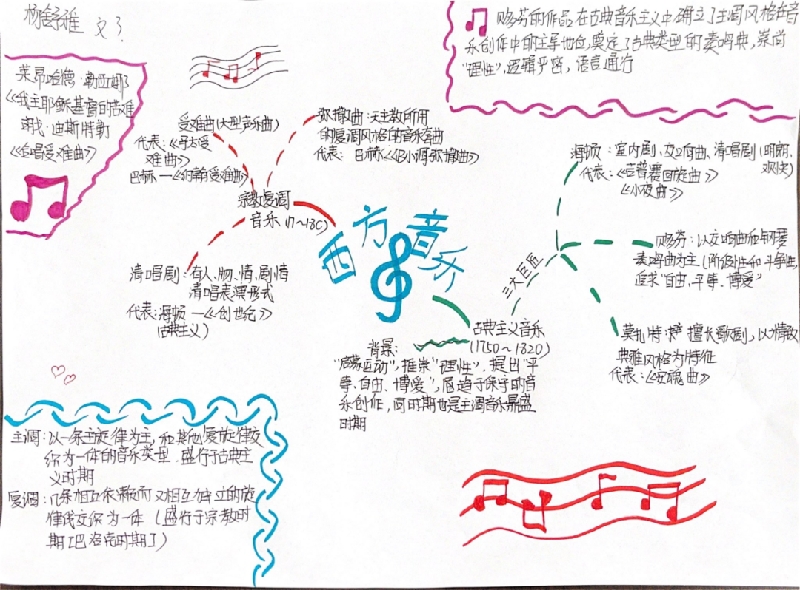 文3
莱昂哈德·勒希耶
《我主耶稣基督的苦难》
朗戈·迪斯特勒
《合唱受难曲》
受难曲(大型音乐曲)
代表:《马太受
难曲》
巴赫—《约翰受难曲》
弥撒曲:天主教所用
的复调风格的音乐套曲
代表:巴赫《b小调弥撒曲》
宗教复调
音乐(17~18C)
清唱剧:有人、物、情、剧情
清唱表演形式
代表:海顿—《创世纪》
(古典主义)
西方音乐
贝多芬的作品在古典音乐主义中确立了主调风格在音
乐创作中的主导地位,奠定了古典类型的奏鸣曲,崇尚
"理性",逻辑严密,语言通行
海顿:室内剧、交响曲、清唱剧(明朗、
欢快)
代表:《吉普赛回旋曲》
《小夜曲》
贝多芬:以交响曲和
奏鸣曲为主(阶级性和斗争性,
追求"自由、平等、博爱"
莫扎特:擅长歌剧,以
典雅风格为特征
代表:《安魂曲》
三大巨匠
古典主义音乐
(1750~1820)
背景:
"启蒙运动",推崇"理性",提出"平
等、自由、博爱",
乐创作,同时期也是主调音乐鼎盛
时期
主调:以一条主旋律为主,和其他旋律交
织为一体的音乐类型.盛行于古典主
义时期
复调:几条相互依赖而又相互独立的旋
律线交织为一体(盛行于宗教时
期[巴洛克时期])